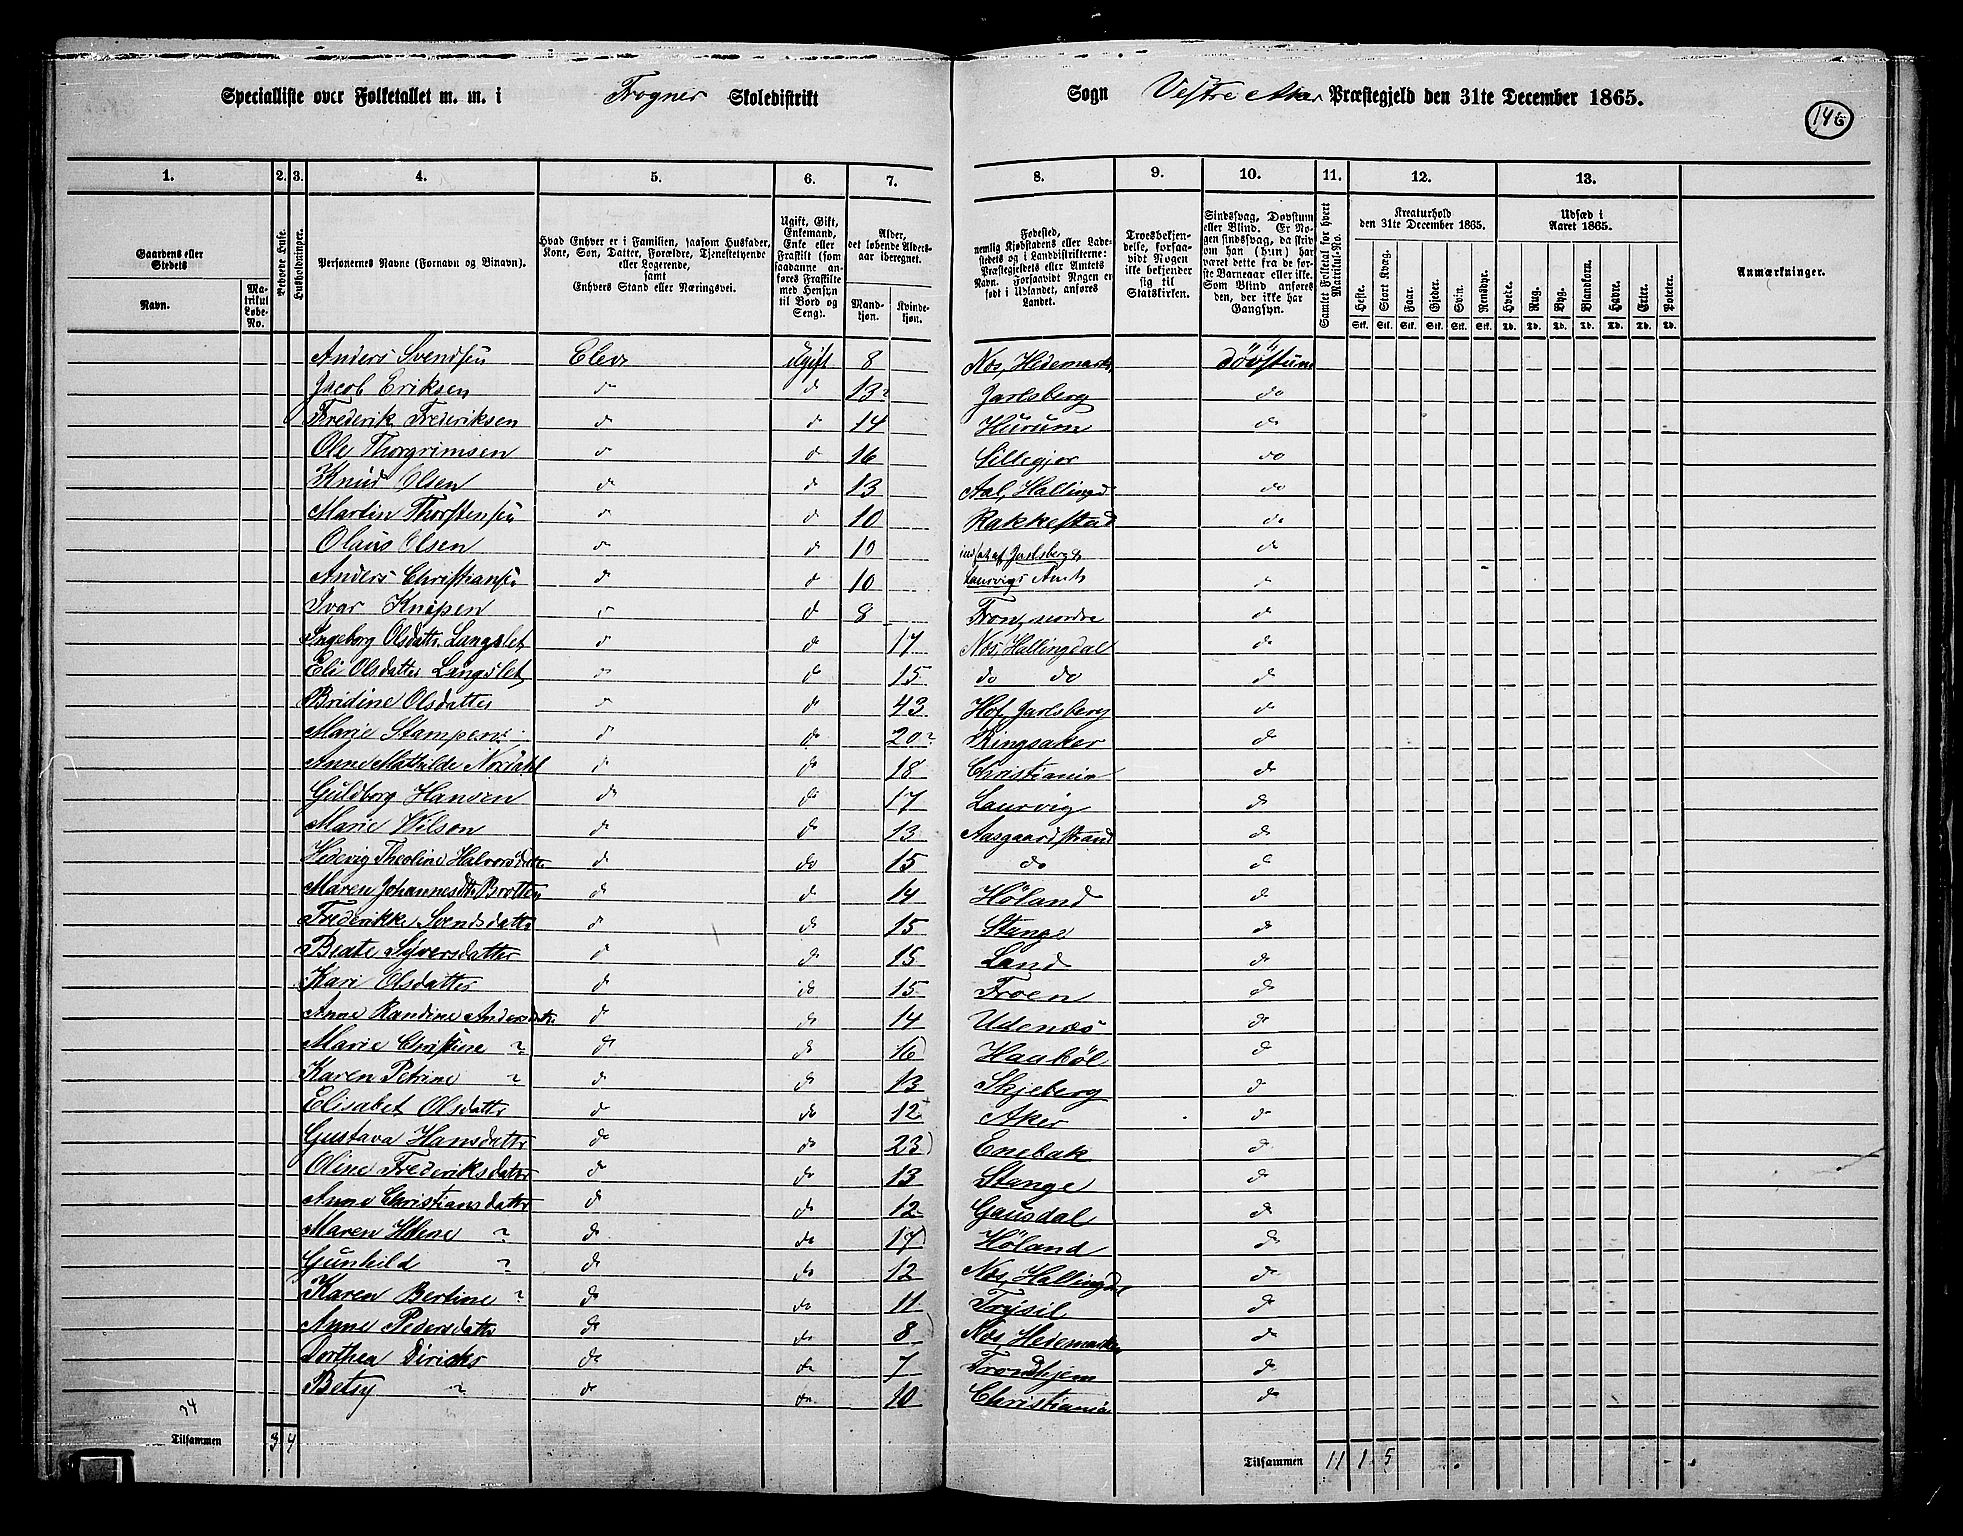 Specialliste over Folketallet m. m. i Frogner Skoledistrikt Sogn Vestre Aker Præstegjeld den 31te December 1865.
146
1. 2. 3. 4. 5. 6. 7. 8. 9. 10. 11. 12. 13.
Gaardens eller Stedets
Navn.
Matrikul Løbe-No.
Beboede Huse.
Husholdninger.
Personernes Navne (Fornavn og Binavn).
Hvad Enhver er i Familien, saasom Husfader, Kone, Søn, Datter, Forældre, Tjenestetyende eller Logerende, samt Enhvers Stand eller Næringsvei.
Ugift, Gift, Enkemand, Enke eller Fraskilt (som saadanne anføres Fraskilte med Hensyn til Bord og Seng).
Alder, det løbende Aldersaar iberegnet.
Mandkjøn. Kvindekjøn.
Fødested, nemlig Kjøbstadens eller Ladestedets og i Landdistrikterne: Præstegjeldets eller Amtets Navn. Forsaavidt Nogen er født i Udlandet, anføres Landet.
Troesbekjendelse, forsaavidt Nogen ikke bekjender sig til Statskirken.
Sindssvag, Døvstum eller Blind. Er Nogen sindssvag, da skriv om han (hun) har været dette fra de første Barneaar eller ikke. Som Blind anføres den, der ikke har Gangsyn.
Samlet Folketal for hvert Matrikul-No.
Kreaturhold den 31te December 1865.
Heste. Stort Kvæg. Faar. Gjeder. Svin. Rensdyr.
Stk. Stk. Stk. Stk. Stk. Stk.
Udsæd i Aaret 1865.
Hvete. Rug. Byg. Blandkorn. Havre. Erter. Poteter.
Td. Td. Td. Td. Td. Td. Td.
Anmærkninger.
Anders Svendsen Elev ugift 8 Nes, Hedemark døvstum
Jacob Eriksen do do 13 Jarlsberg do
Frederik Frederiksen do do 14 Hurum do
Ole Thorgrimsen do do 16 Sillegjor do
Knud Olsen do do 13 Aal, Hallingd do
Martin Thorstensen do do 10 Rakkestad do
Olaus Olsen do do 10 Jarlsberg & do
Anders Christiansen do do 10 Laurvigs Amt do
Ivar Knüpen do do 8 Fron, nordre do
Ingeborg Olsdatter Langslet do do 17 Nes, Hallingdal do
Eli Olsdatter Langslet do do 15 do do do
Bridine Olsdatter do do 43 Hof, Jarlsberg do
Marie Stampen do do 20 Ringsaker do
Anne Mathilde Nordahl do do 18 Christiania do
Guldborg Hansen do do 17 Laurvig do
Marie Wilson do do 13 Aasgaardstrand do
Hedevig Theoline Halvorsdatter do do 15 do do
Maren Johannesdtr Brotten do do 14 Höland do
Frederikke Svendsdatter do do 15 Stange do
Beate Syversdatter do do 15 Land do
Kari Olsdatter do do 15 Froen do
Anne Randine Andersdatr do do 14 Udenæs do
Marie Christine ? do do 16 Haaböl do
Karen Petrine ? do do 13 Skjeberg do
Elisabet Olsdattr do do 12 Aker do
Gustava Hansdattr do do 23 Enebak do
Oline Frederiksdatter do do 13 Stange do
Anne Christiansdatter do do 12 Gausdal do
Maren Helene ? do do 17 Höland do
Gunhild ? do do 12 Nes, Hallingdal do
Karen Bertine ? do do 11 Trysil do
Anne Pedersdattr do do 8 Nes, Hedemarken do
Dorthea Diricks do do 7 Trondhjem do
Betsy ? do do 10 Christiania do
34
Tilsammen 3 4
Tilsammen 11 1 5